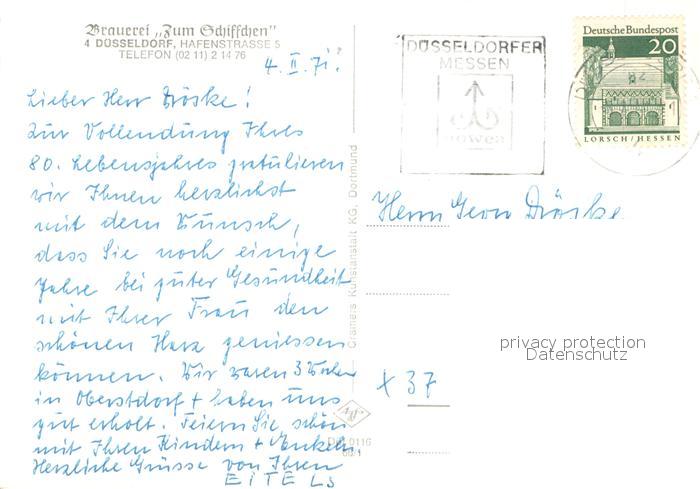 Brauerei „Zum Schiffchen"
4 DÜSSELDORF, HAFENSTRASSE 5
TELEFON (02 11) 2 14 76
4. II. 71.
Lieber Herr Dröske!
Zur Vollendung Ihres
80. Lebensjahres gratulieren
wir Ihnen herzlichst
mit dem Wunsch,
dass Sie noch einige
Jahre bei guter Gesundheit
mit Ihrer Frau den
schönen Harz geniessen
können. Wir waren 3 Wochen
in Oberstdorf + haben uns
gut erholt. Feiern Sie schön
mit Ihren Kindern + Enkeln
Herzliche Grüsse von Ihren
EITELs
Cramers Kunstanstalt KG, Dortmund
DÜSSELDORFER
MESSEN
Deutsche Bundespost
20
LORSCH/HESSEN
Herrn Georg Dröske
privacy protection
Datenschutz
x 37